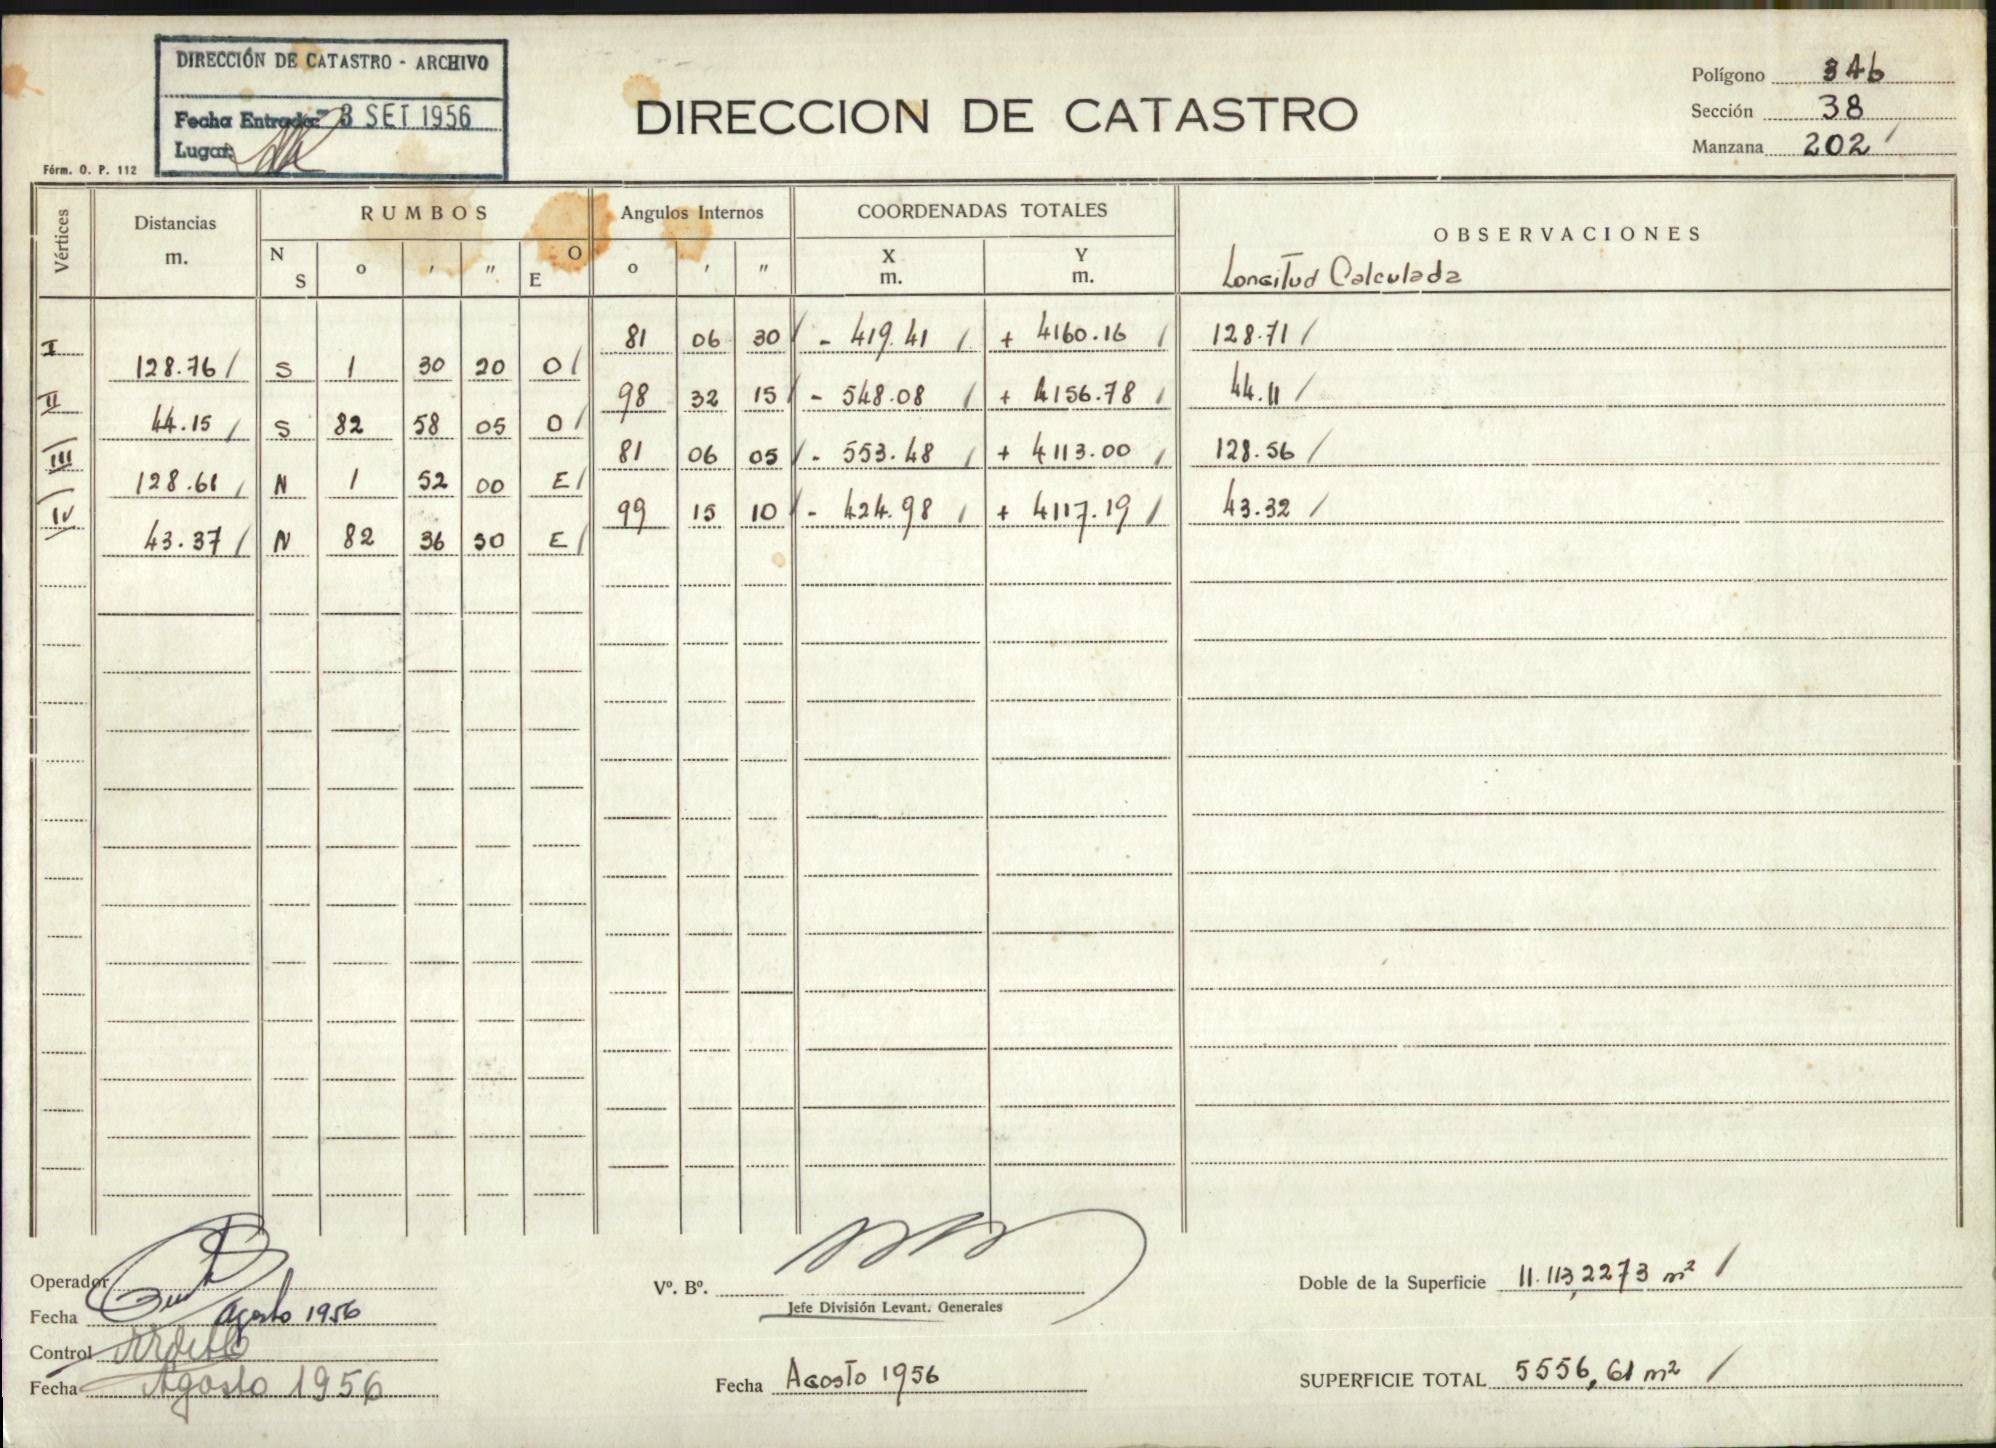 DIRECCIÓN DE CATASTRO - ARCHIVO
Fecha Entrada: 3 SET 1956
Lugar:
Fórm. O. P. 112
DIRECCION DE CATASTRO
Polígono 346
Sección 38
Manzana 202
Vértices Distancias m. RUMBOS N S o ' " E O Angulos Internos o ' " COORDENADAS TOTALES X m. Y m. OBSERVACIONES
Longitud Calculada
I 81 06 30 - 419.41 + 4160.16 128.71
128.76 S 1 30 20 O
II 98 32 15 - 548.08 + 4156.78 44.11
44.15 S 82 58 05 O
III 81 06 05 - 553.48 + 4113.00 128.56
128.61 N 1 52 00 E
IV 99 15 10 - 424.98 + 4117.19 43.32
43.37 N 82 36 50 E
Operador
Fecha Agosto 1956
Control
Fecha Agosto 1956
Vº. Bº.
Jefe División Levant. Generales
Fecha Agosto 1956
Doble de la Superficie 11.113,2273 m²
SUPERFICIE TOTAL 5556,61 m²